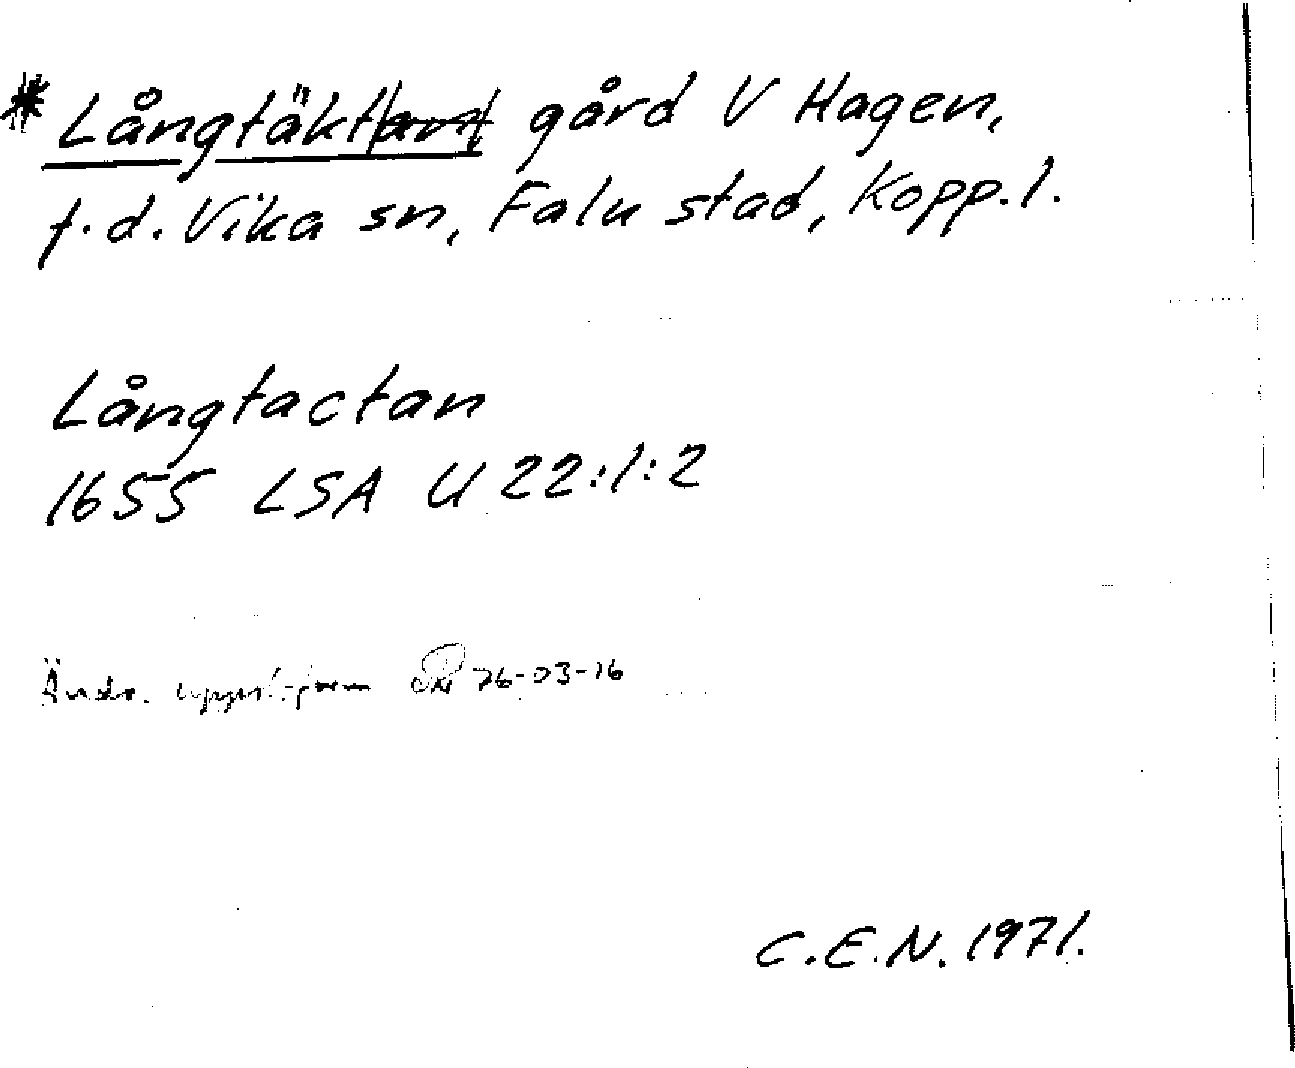 * Långtäkt/an/ gård V Hagen,
f.d. Vika sn, Falu stad, Kopp.l.
Långtactan
1655 LSA U 22:1:2
Ändr. uppsl.form 76-03-16
C.E.N. 1971.